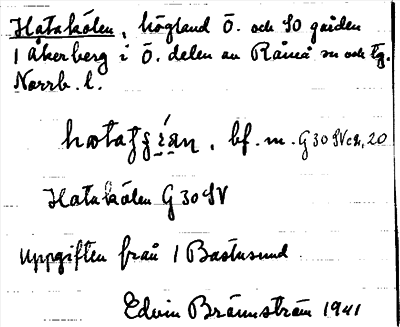 Hatakölen, högland Ö. och SO gården
1 Åkerberg i Ö. delen av Råneå sn och tg.
Norrb. l.
bf. m. G 30 SV
Hatakölen G 30 SV
Uppgiften från 1 Bastusund
Edvin Brännström 1941